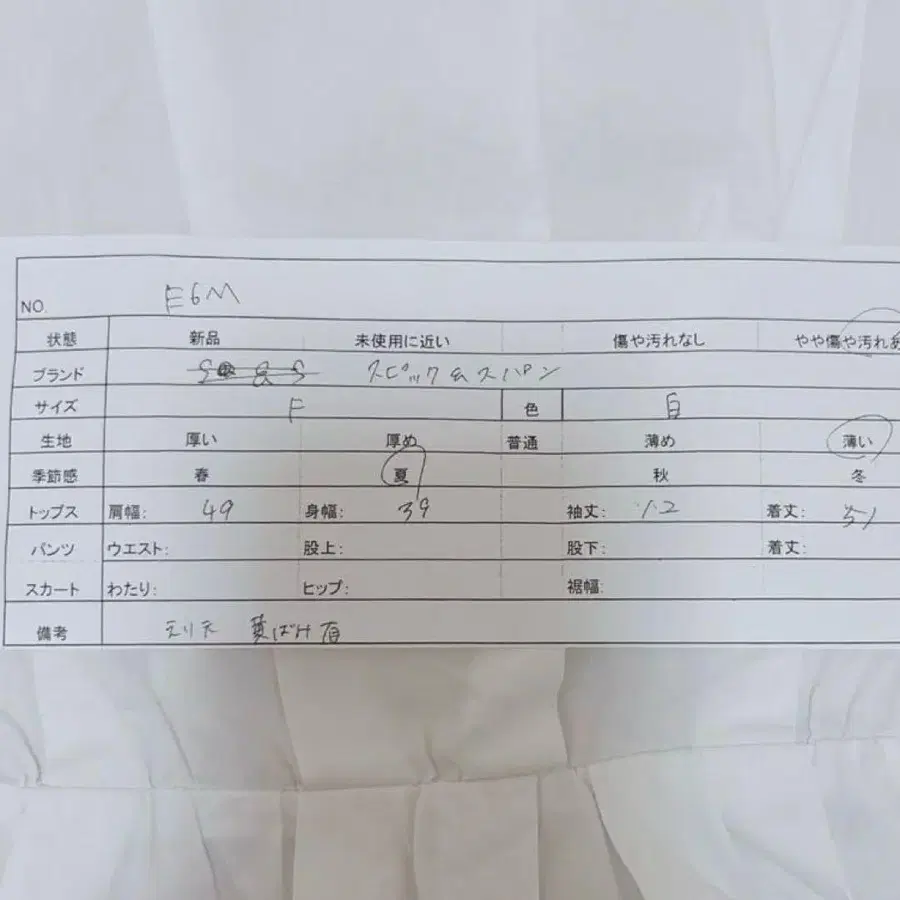 NO. E6M
状態 新品 未使用に近い 傷や汚れなし やや傷や汚れあ
ブランド スピック&スパン
サイズ F 色 白
生地 厚い 厚め 普通 薄め 薄い
季節感 春 夏 秋 冬
トップス 肩幅: 49 身幅: 39 袖丈: 12 着丈: 51
パンツ ウエスト: 股上: 股下: 着丈:
スカート わたり: ヒップ: 裾幅:
備考 黄ばみ有